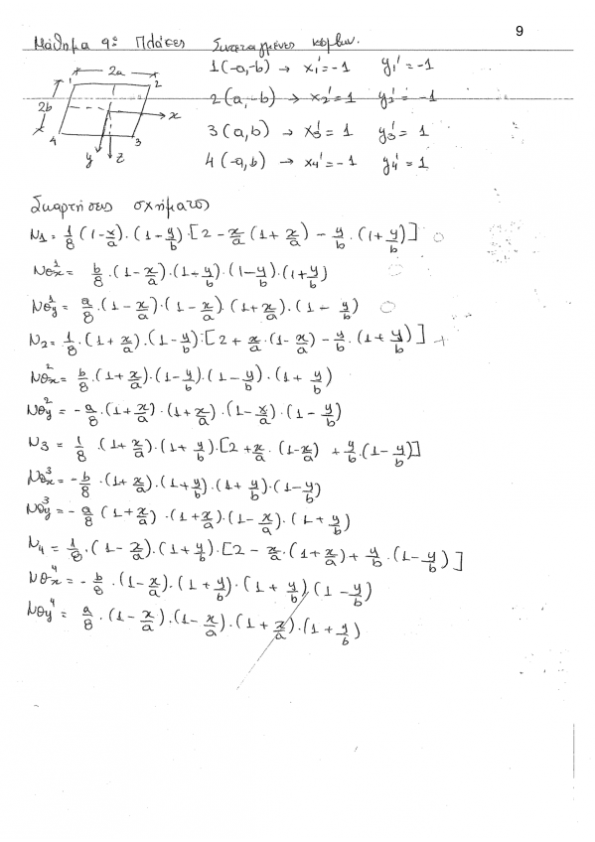 9
Μάθημα 9ο Πλάκες Συντεταγμένες κόμβων.
2a
1 2
2b
x
4 3
y z
1(-a,-b) → x₁'=-1 y₁'=-1
2(a,-b) → x₂'=1 y₂'=-1
3(a,b) → x₃'=1 y₃'=1
4(-a,b) → x₄'=-1 y₄'=1
Συναρτήσεις σχήματος
N1 = 1/8 (1-x/a)·(1-y/b)·[2-x/a(1+x/a)-y/b·(1+y/b)]
Nθx¹ = b/8·(1-x/a)·(1-y/b)·(1-y/b)·(1+y/b)
Nθy¹ = a/8·(1-x/a)·(1-x/a)·(1+x/a)·(1-y/b)
N2 = 1/8·(1+x/a)·(1-y/b)·[2+x/a·(1-x/a)-y/b·(1+y/b)]
Nθx² = b/8·(1+x/a)·(1-y/b)·(1-y/b)·(1+y/b)
Nθy² = -a/8·(1+x/a)·(1+x/a)·(1-x/a)·(1-y/b)
N3 = 1/8·(1+x/a)·(1+y/b)·[2+x/a·(1-x/a)+y/b·(1-y/b)]
Nθx³ = -b/8·(1+x/a)·(1+y/b)·(1+y/b)·(1-y/b)
Nθy³ = -a/8(1+x/a)·(1+x/a)·(1-x/a)·(1+y/b)
N4 = 1/8·(1-x/a)·(1+y/b)·[2-x/a·(1+x/a)+y/b·(1-y/b)]
Nθx⁴ = -b/8·(1-x/a)·(1+y/b)·(1+y/b)(1-y/b)
Nθy⁴ = a/8·(1-x/a)·(1-x/a)·(1+x/a)·(1+y/b)